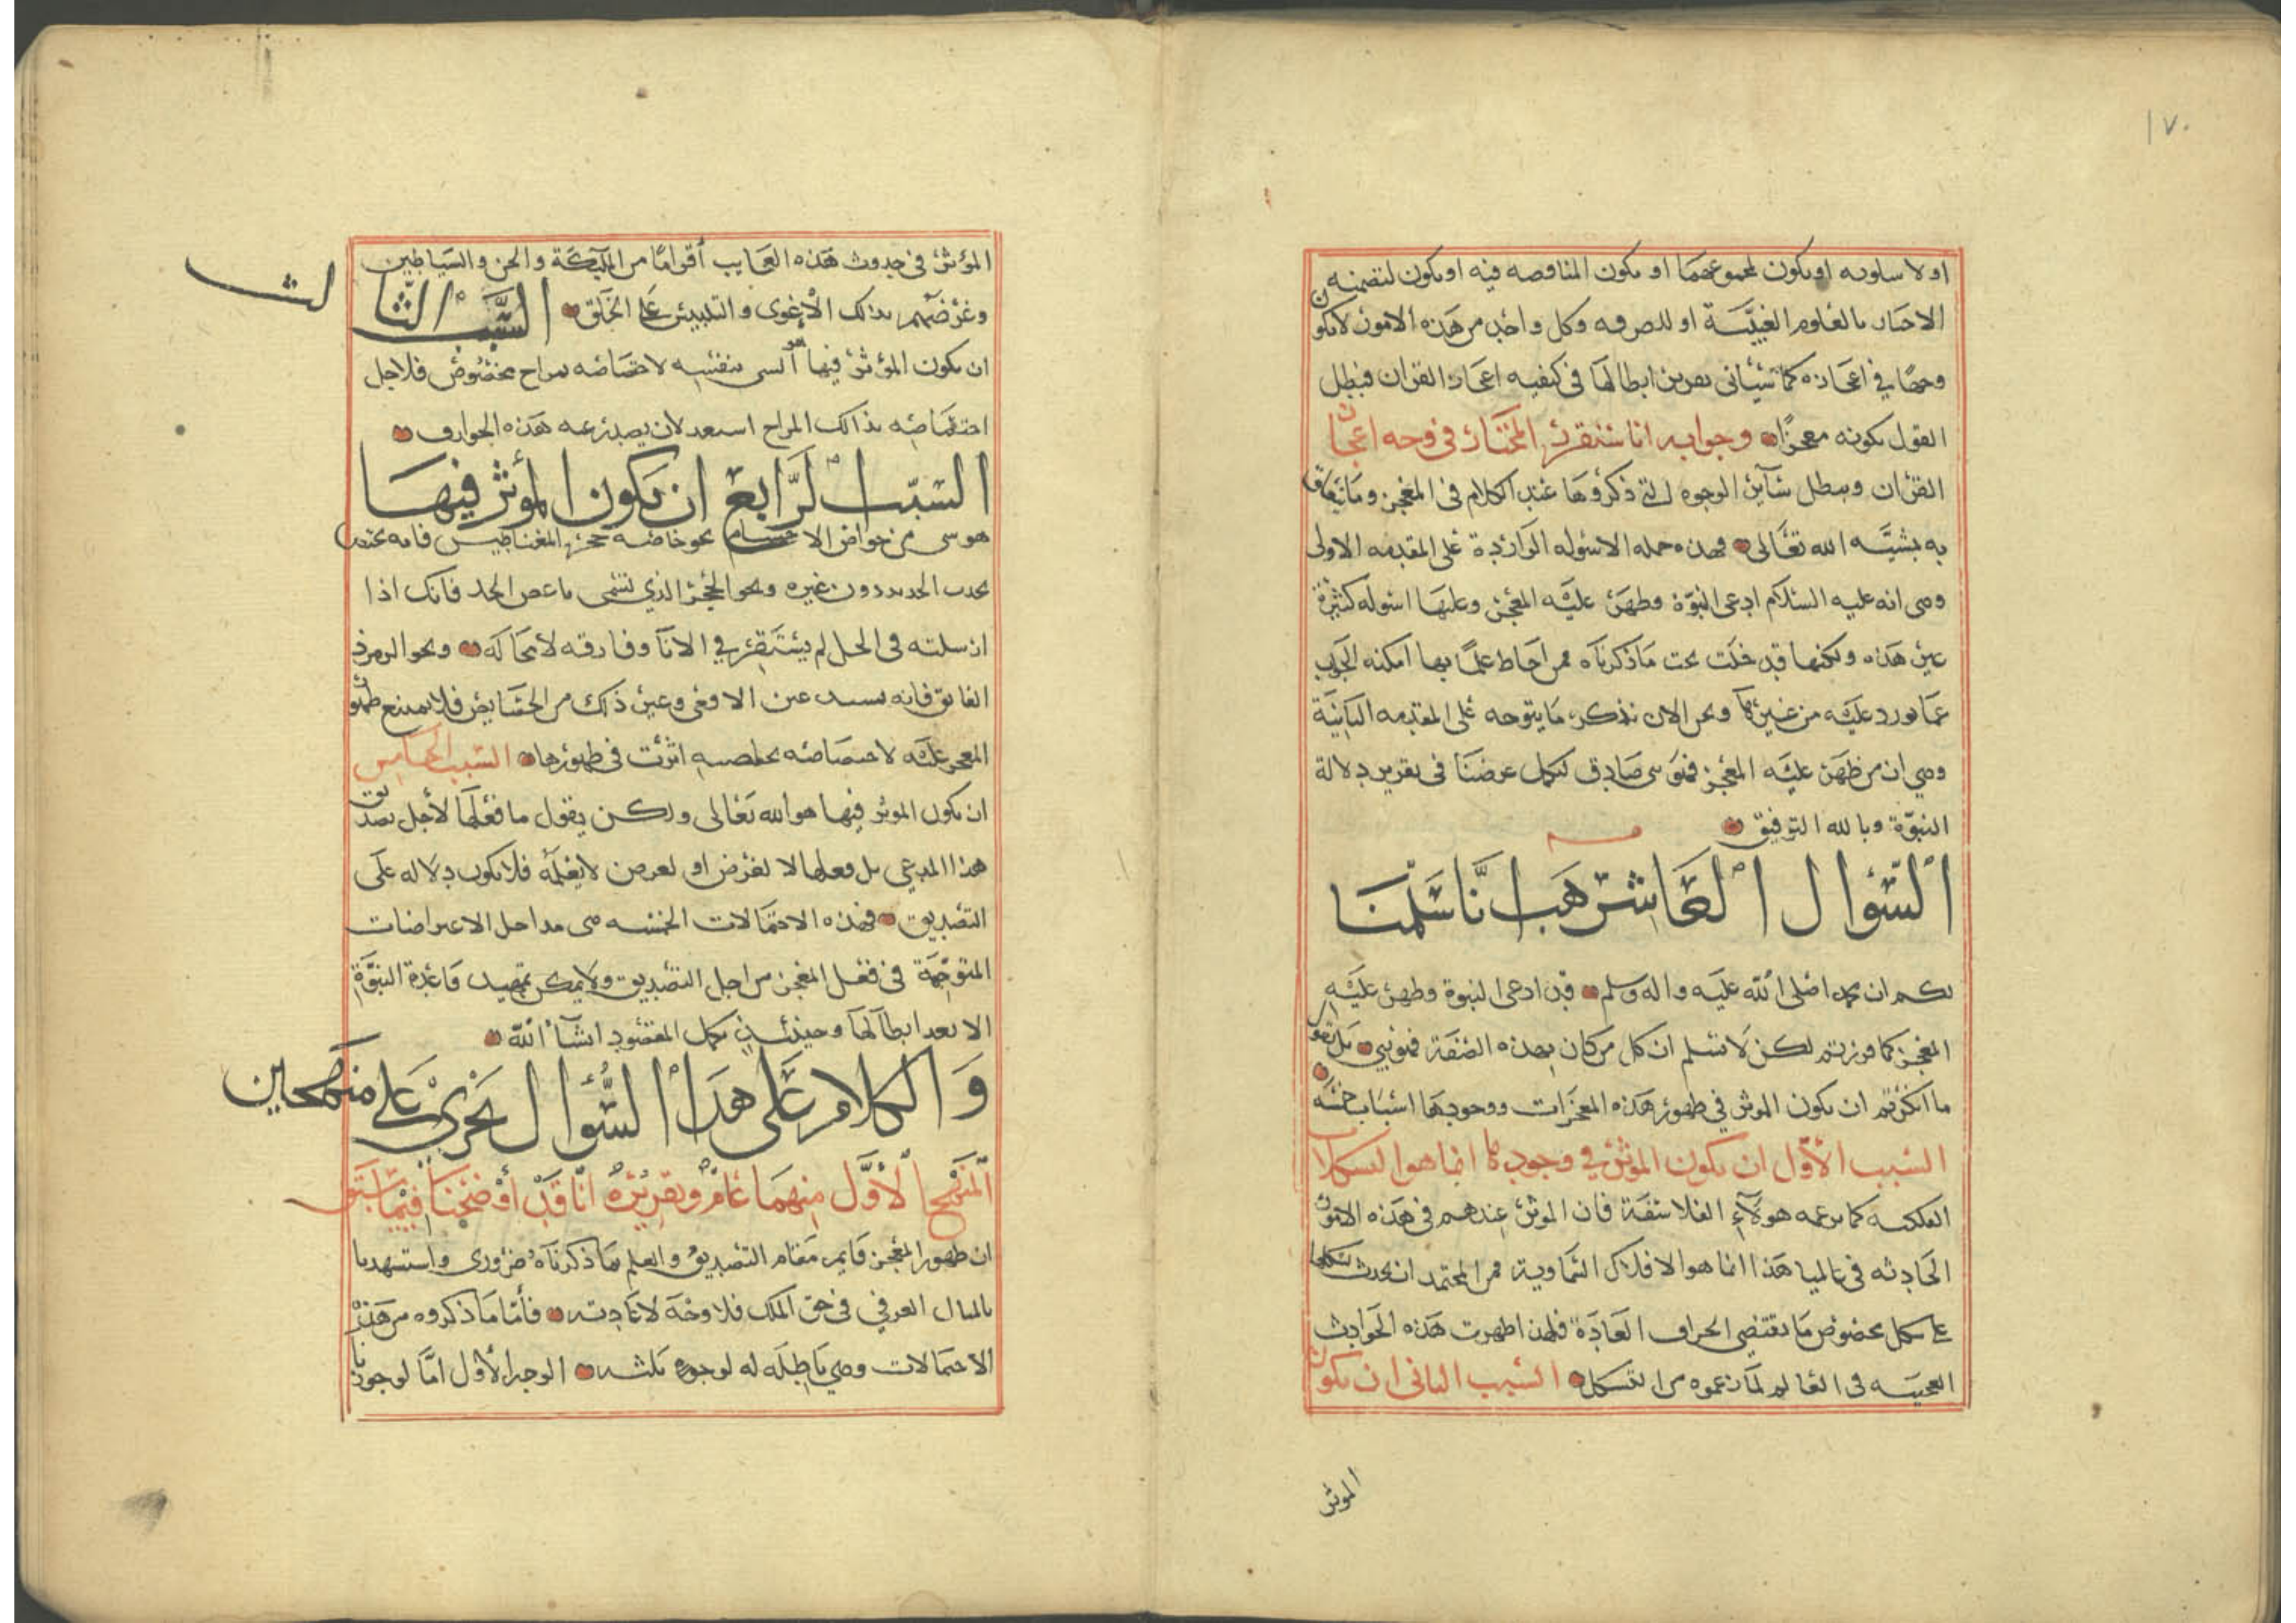 ١٧٠
او لاسلوبه او يكون لمجموعهما او يكون المناقصه فيه او يكون لتضمنه
الاخبار بالعلوم الغيبيّة او للصرفه وكل واحد من هذه الامور لا يكون
وجهًا في اعجازه كما سياتي تقرير ابطالها في كيفيه اعجاز القران فبطل
القول بكونه معجزًا وجوابه انا سنقرر المختار في وجه اعجاز
القران ونبطل سآير الوجوه التي ذكروها عند الكلام في المعجز وما يتعلق
به بمشيّه الله تعالى فهذه جمله الاسوله الواردة على المقدمه الاولى
وهي انه عليه السلام ادعى النبوّة وظهر عليه المعجز وعليها اسوله كثيرة
غير هذه ولكنها قد دخلت تحت ما ذكرناه فمن احاط علمًا بها امكنه الجواب
عما يورد عليه من غيرها ونحن الان نذكر ما يتوجه على المقدمه الثانية
وهي ان من ظهر عليه المعجز فهو نبي صادق ليكمل غرضنا في تقرير دلالة
النبوّة وبالله التوفيق
السّؤال العاشر هب انّا سلّمنا
لكم ان محمدا صلى الله عليه واله وسلم قد ادعى النبوة وظهر عليه
المعجز كما قررتم لكن لا نسلم ان كل من كان بهذه الصفة فهو نبي بل نقول
ما انكرتم ان يكون الموثر في ظهور هذه المعجزات ووجودها اسباب خمسه
السبب الأوّل ان يكون الموثر في وجودها انما هو التشكلات
الفلكيه كما يزعمه هولآء الفلاسفة فان الموثر عندهم في هذه الامور
الحادثه في عالمنا هذا انما هو الافلاك السماوية فمن المحتمل ان يحدث تشكلها
على شكل مخصوص ما يقتضي انخراف العادة فلهذا ظهرت هذه الحوادث
العجيبه في العالم لما زعموه من التشكل السبب الثاني ان يكون
الموثر
المؤثر في حدوث هذه العجايب أقوامًا من الملايكة والجن والشياطين
وغرضهم بذلك الاغوى والتلبيس على الخلق السّبب الثّالث
ان يكون المؤثر فيها هو النبي بنفسه لاختصاصه بمزاج مخصوص فلاجل
اختصاصه بذالك المزاج استعد لان يصدر عنه هذه الخوارق
السّبب الرّابع ان يكون المؤثر فيها
هو شي من خواص الاجسام نحو خاصه حجر المغناطيس فانه يختص
بجذب الحديد دون غيره ونحو الحجر الذي تسمى باغض الخل فانك اذا
ارسلته في الخل لم يستقر في الانآ وفارقه لا محاله ونحو الزمرد
الفايق فانه يسيل عين الافعى وغير ذلك من الخصايص فلا يمتنع ظهور
المعجز عليه لاختصاصه بخاصيه اثرت في ظهورها السبب الخامس
ان يكون الموثر فيها هو الله تعالى ولكن يقول ما فعلها لأجل تصديق
هذا المدعي بل فعلها لا لغرض او لغرض لا يعلمه فلا يكون دلاله على
التصديق فهذه الاحتمالات الخمسه هي مداخل الاعتراضات
المتوجّهة في فعل المعجز من اجل التصديق ولا يمكن تمهيد قاعدة النبوّة
الا بعد ابطالها وحينئذٍ يكمل المقصود انشآ الله
وَالكلام على هذا السّؤال يجري على منهجين
المنهج الأوّل منهما عامّ وتقريره انّا قد أوضحنا فيما سبق
ان ظهور المعجز قايم مقام التصديق والعلم بما ذكرناه ضروري واستشهدنا
بالمثال العرفي في حق الملك فلا وجه لاعادته فأما ما ذكروه من هذه
الاحتمالات وهي باطله لوجوه ثلثه الوجه الأول امّا لوجودنا